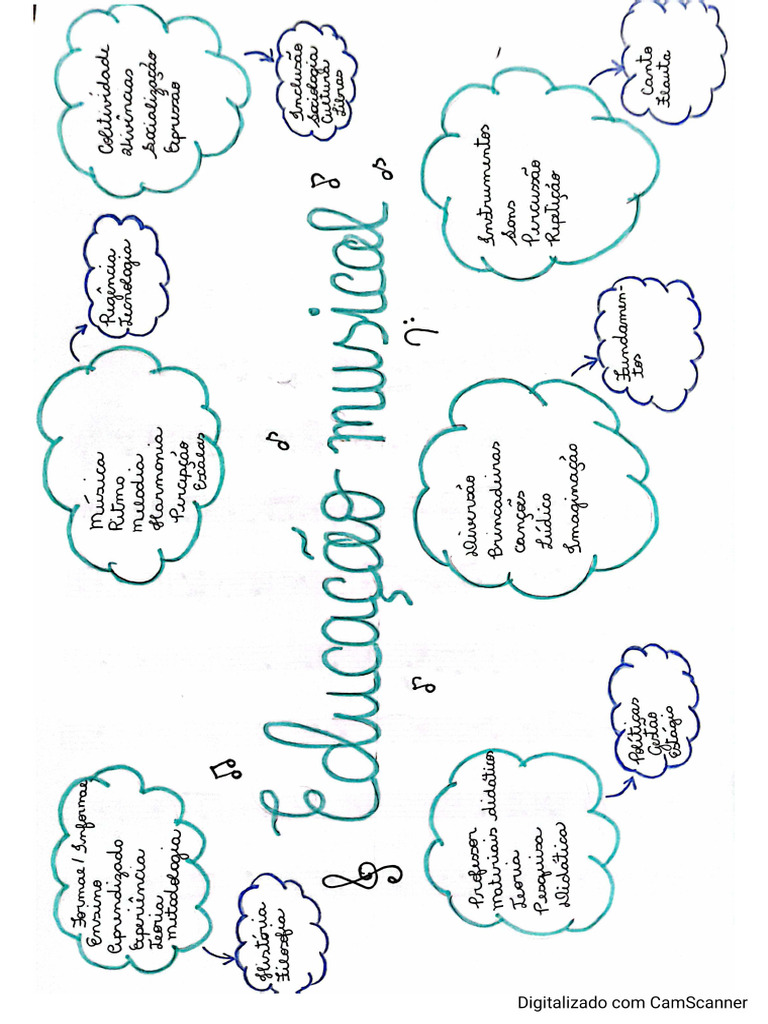 Formal / Informal
Ensino
Aprendizado
Experiência
Teoria
Metodologia
História
Filosofia
Música
Ritmo
Melodia
Harmonia
Percepção
Escalas
Regência
Tecnologia
Coletividade
Vivências
Socialização
Expressão
Inclusão
Sociologia
Cultura
Libras
Educação musical
Professor
Materiais didáticos
Teoria
Pesquisa
Didática
Políticas
Gestão
Estágio
Diversão
Brincadeiras
canções
Lúdico
Imaginação
Fundamen-
tos
Instrumentos
Sons
Percussão
Repetição
Canto
Flauta
Digitalizado com CamScanner